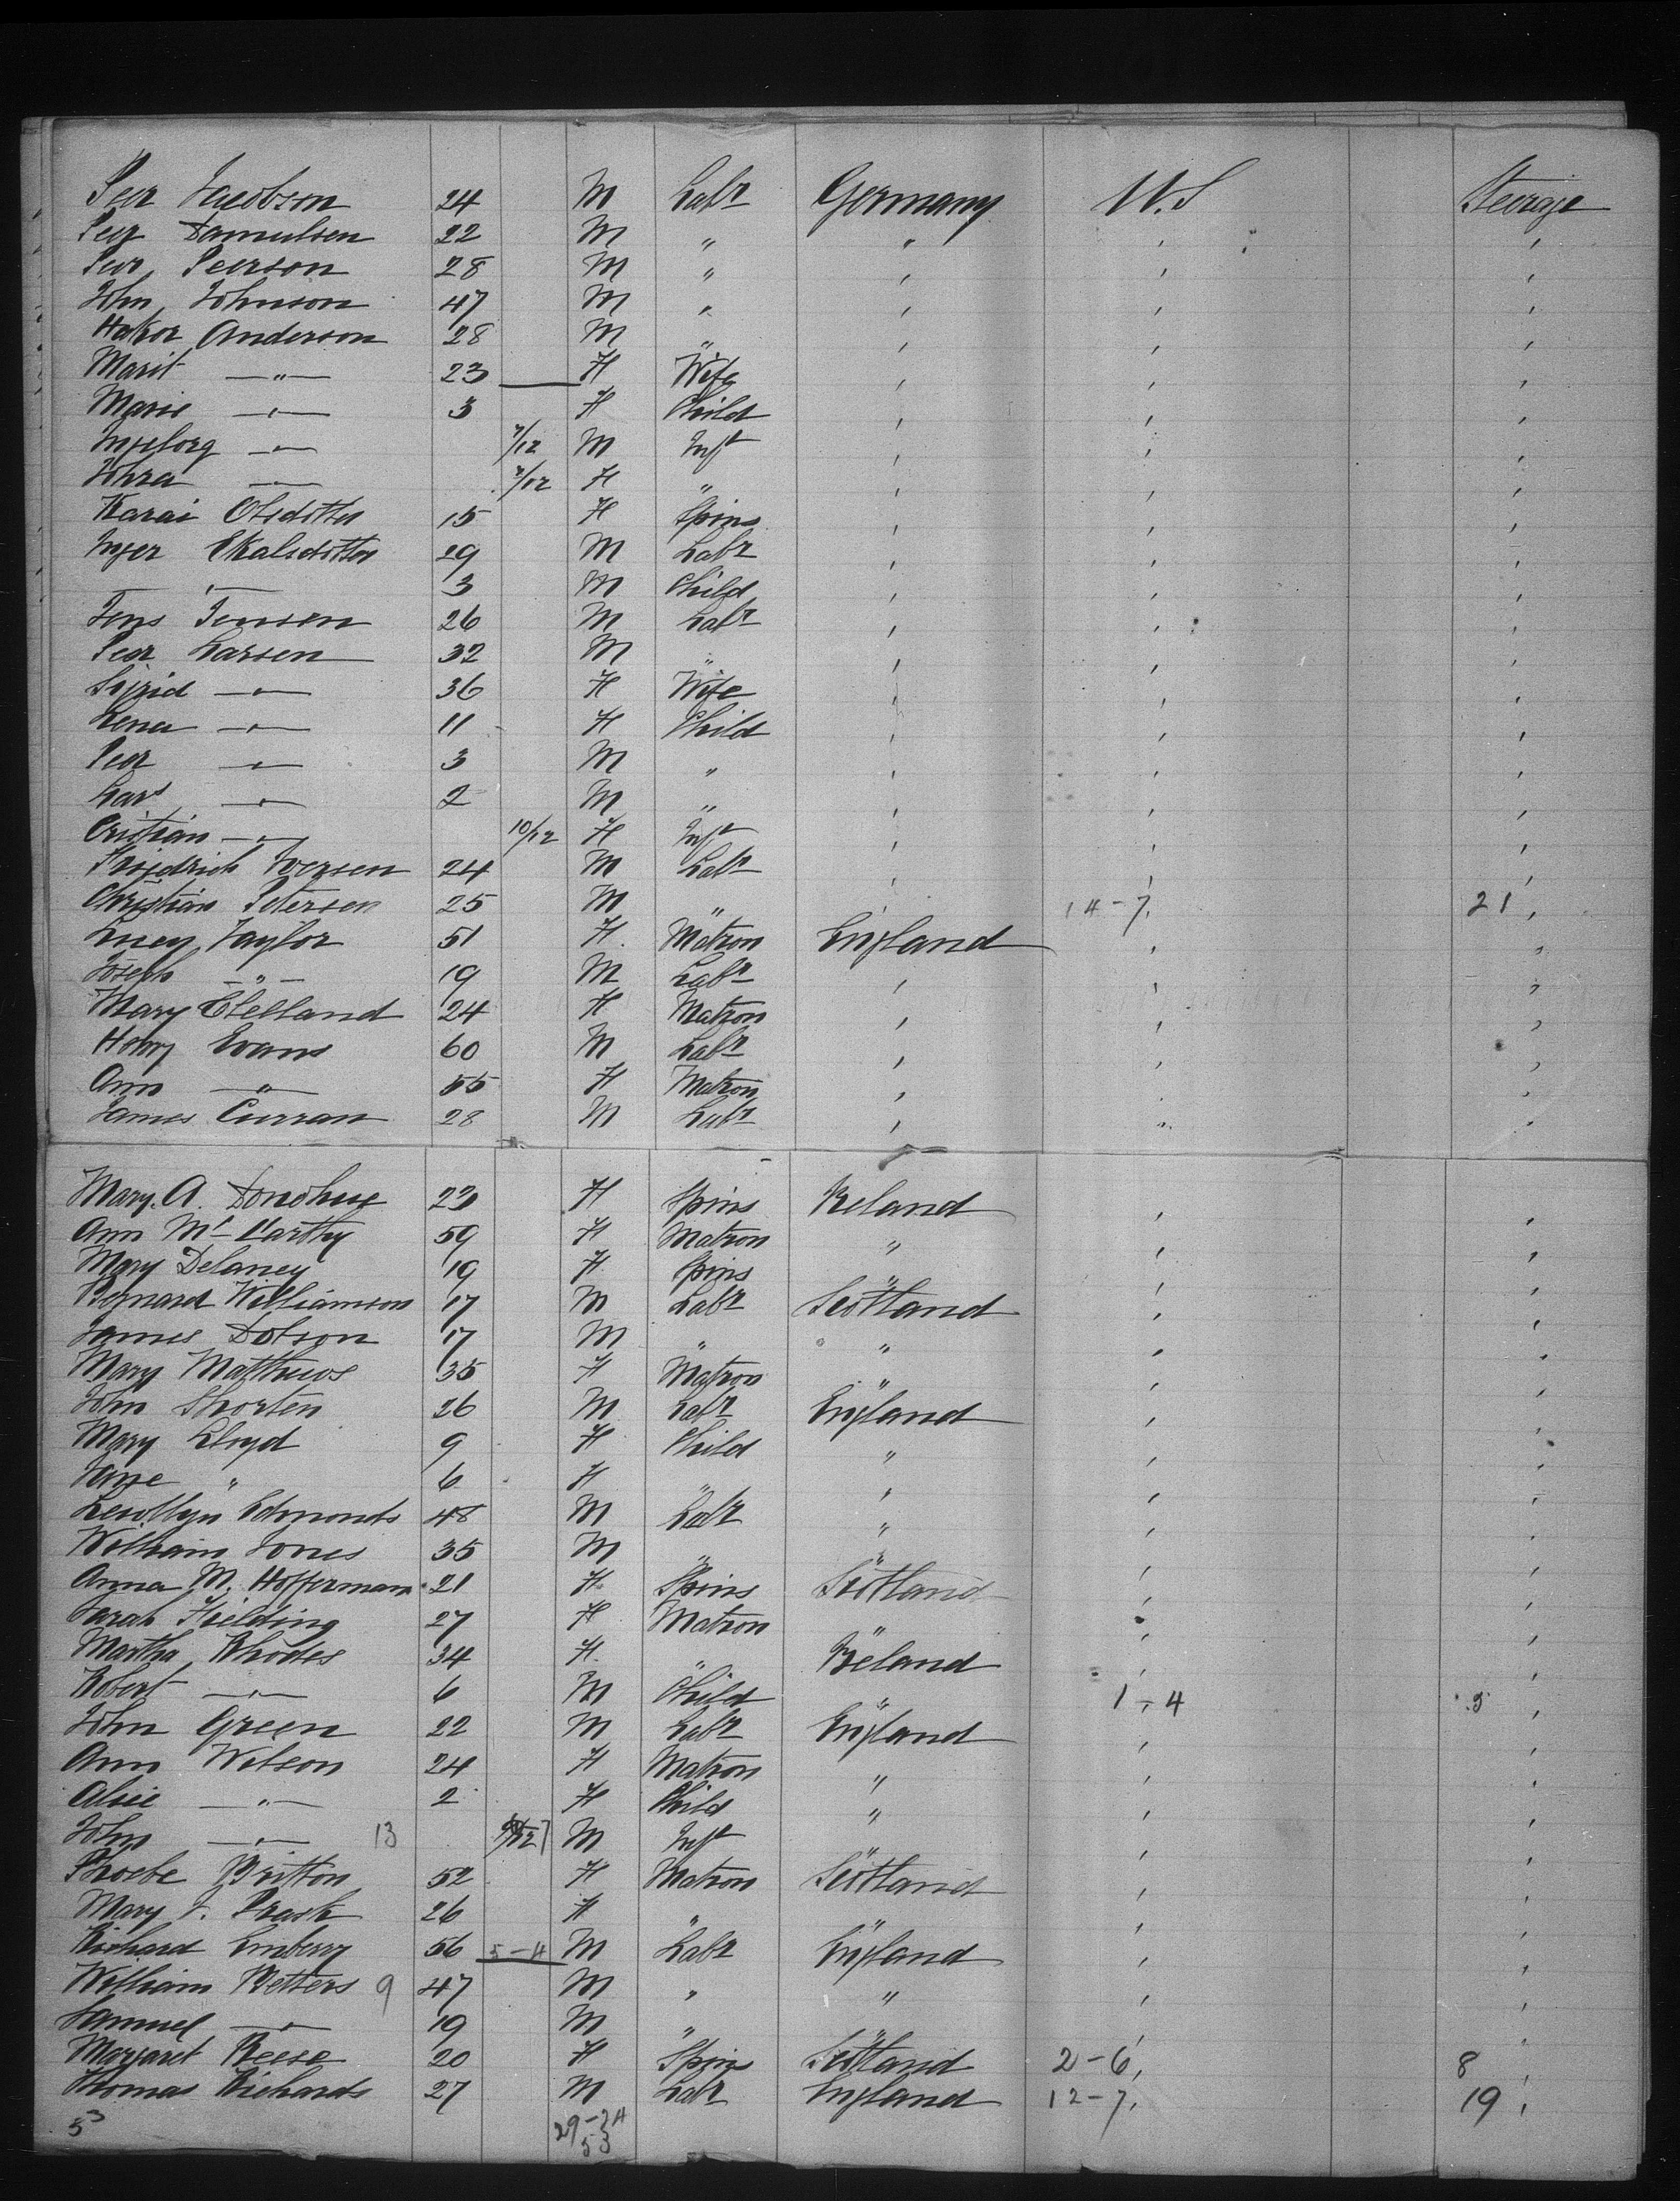 Peer Jacobson 24 M Labr Germany U.S Steerage
Peer Samuelsen 22 M " " " "
Peer Peerson 28 M " " " "
John Johnson 47 M " " " "
Hakor Anderson 28 M " " " "
Marit —"— 23 F Wife " " "
Marie —"— 3 F Child " " "
Ingeborg —"— 7/12 M Inft " " "
Johra —"— 7/12 F " " " "
Karai Olsdotter 15 F Spins " " "
Inger Skalsdotter 29 M Labr " " "
—"— 3 M Child " " "
Jens Jensen 26 M Labr " " "
Peer Larsen 32 M " " " "
Sigrid —"— 36 F Wife " " "
Lena —"— 11 F Child " " "
Peer —"— 3 M " " " "
Lars —"— 2 M " " " "
Cristian —"— 10/12 F Inft " " "
Friedrich Iversen 24 M Labr " " "
Christian Petersen 25 M " " 14-7 " 21 "
Lucy Taylor 51 F Matron England " "
Joseph —"— 19 M Labr " " "
Mary Clelland 24 F Matron " " "
Henry Evans 60 M Labr " " "
Ann —"— 55 F Matron " " "
James Curran 28 M Labr " " "
Mary. A. Donohue 23 F Spins Ireland " "
Ann Mc Carthy 59 F Matron " " "
Mary Delaney 19 F Spins " " "
Bernard Williamson 17 M Labr Scotland " "
James Dotson 17 M " " " "
Mary Matthews 35 F Matron " " "
John Shorten 26 M Labr England " "
Mary Lloyd 9 F Child " " "
Jane " 6 F " " " "
Lewllyn Edmonds 48 M Labr " " "
William Jones 35 M " " " "
Anna M. Hoffermann 21 F Spins Scotland " "
Sarah Fielding 27 F Matron " " "
Martha Rhodes 34 F " Ireland " "
Robert —"— 6 M Child " 1-4 5 "
John Green 22 M Labr England " "
Ann Wilson 24 F Matron " " "
Alsie —"— 2 F Child " " "
John —"— 13 M Inft " " "
Phoebe Britton 52 F Matron Scotland " "
Mary J. Prask 26 F " " " "
Richard Emberry 56 5-4 M Labr England " "
William Betters 9 47 M " " " "
Samuel —"— 19 M " " " "
Margaret Reese 20 F Spins Scotland 2-6 " 8 "
Thomas Richards 27 M Labr England 12-7 " 19 "
53 29-24
53